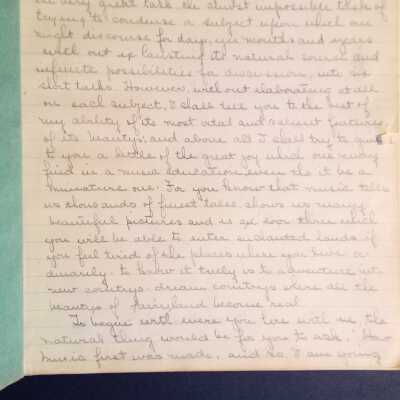 very great task the almost impossible task of
trying to condense a subject upon which one
might discourse for days, yes months and years
with out exhausting its natural sources and
infinite possibilities for discussion, into six
short talks. However, with out elaborating at all
on each subject, I shall tell you to the best of
my ability of its most vital and salient features
of its beautys; and above all I shall try to give
to you a little of the great joy which one may
find in a music education even tho it be a
miniature one. For you know that music tells
us thousands of finest tales, shows us many
beautiful pictures and is door thru which
you will be able to enter enchanted lands if
you ful tired of the places where you live or
dinarily. to know it truly is to adventure into
new countrys. dream countrys where all the
beautys of fairyland become real
To begin with were you here with me, the
natural thing would be for you to ask, "How
Music first was made, and so, I am going